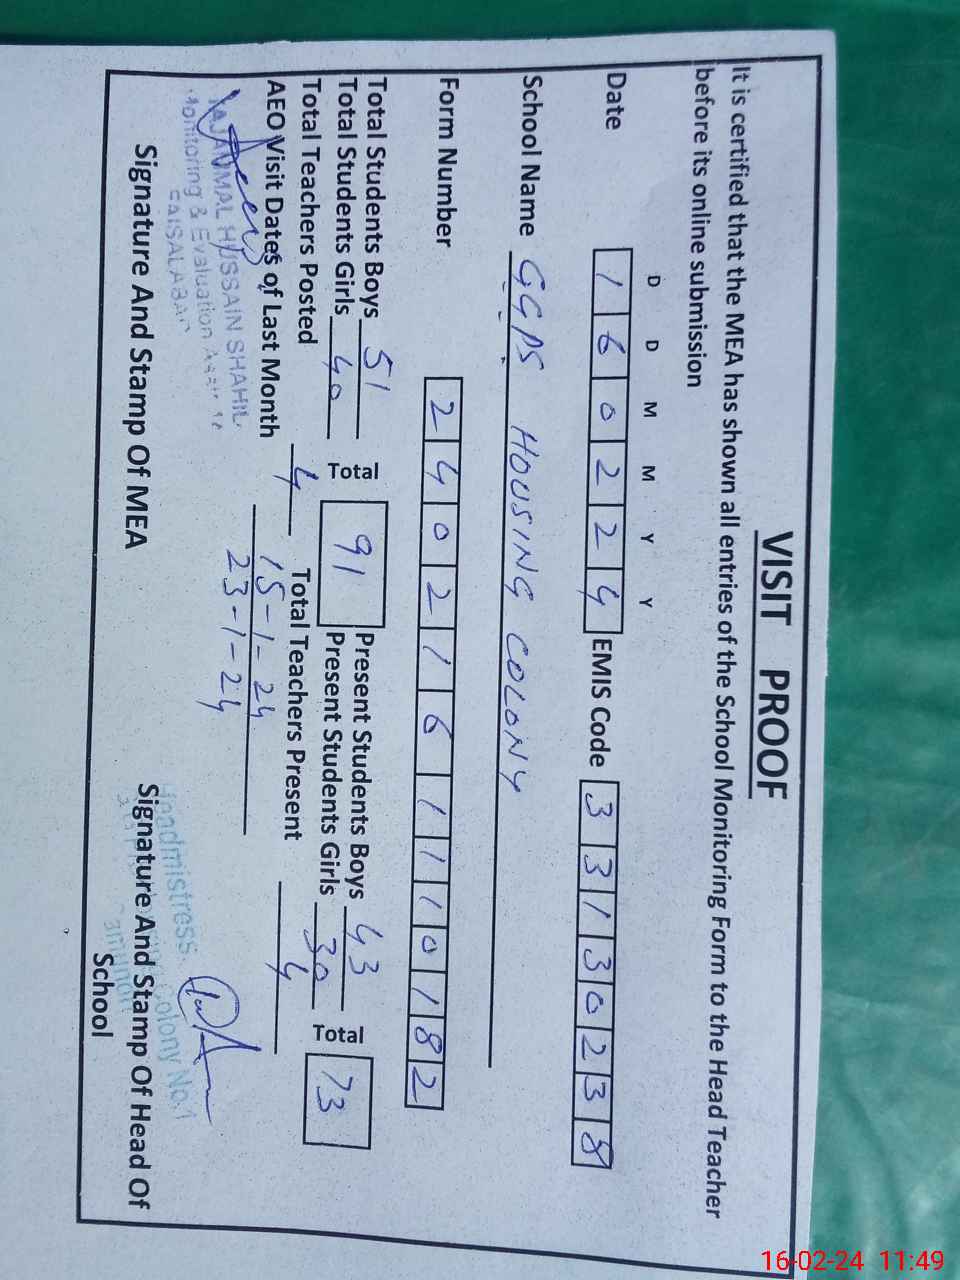 VISIT PROOF
It is certified that the MEA has shown all entries of the School Monitoring Form to the Head Teacher
before its online submission
D D M M Y Y
Date 160224 EMIS Code 33130238
School Name GGPS HOUSING COLONY
Form Number 2402161110182
Total Students Boys 51 Present Students Boys 43
Total Students Girls 40 Total 91 Present Students Girls 30 Total 73
Total Teachers Posted 4 Total Teachers Present 4
AEO Visit Dates of Last Month 15-1-24
23-1-24
HUSSAIN SHAHIL
Monitoring & Evaluation
FAISALABAD
Headmistress
Colony No.1
Signature And Stamp Of MEA Signature And Stamp Of Head Of
School
16-02-24 11:49